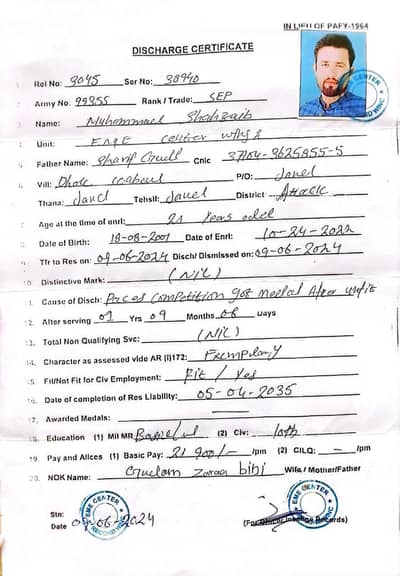 IN LIEU OF PAFY-1964
DISCHARGE CERTIFICATE
1. Rel No: 3045 Ser No: 30940
2. Army No. 99355 Rank / Trade: SEP
3. Name: Muhammad Shahzaib
4. Unit: EME center
5. Father Name: Sharif Cnic 37104-9625855-5
6. Vill: Dhok P/O: Jand
Thana: Jand Tehsil: Jand District Attock
7. Age at the time of enrl: 21 Years old
8. Date of Birth: 18-08-2001 Date of Enrl: 10-24-2022
9. Tfr to Res on: 09-06-2024 Disch/ Dismissed on: 09-06-2024
10. Distinctive Mark: (NIL)
11. Cause of Disch: Paces Competition got medal After unfit
12. After serving 01 Yrs 09 Months 06 Days
13. Total Non Qualifying Svc: (NIL)
14. Character as assessed vide AR (I)172: Exemplary
15. Fit/Not Fit for Civ Employment: Fit / Yes
16. Date of completion of Res Liability: 05-04-2035
17. Awarded Medals:
18. Education (1) Mil MR (2) Civ: 10th
19. Pay and Allces (1) Basic Pay: 21900/- /pm (2) CILQ: - /pm
20. NOK Name: Ghulam Zaraa bibi Wife / Mother/Father
Stn:
Date 09-06-2024
(For Officer Incharge Records)
EME CENTER
RECORD WING